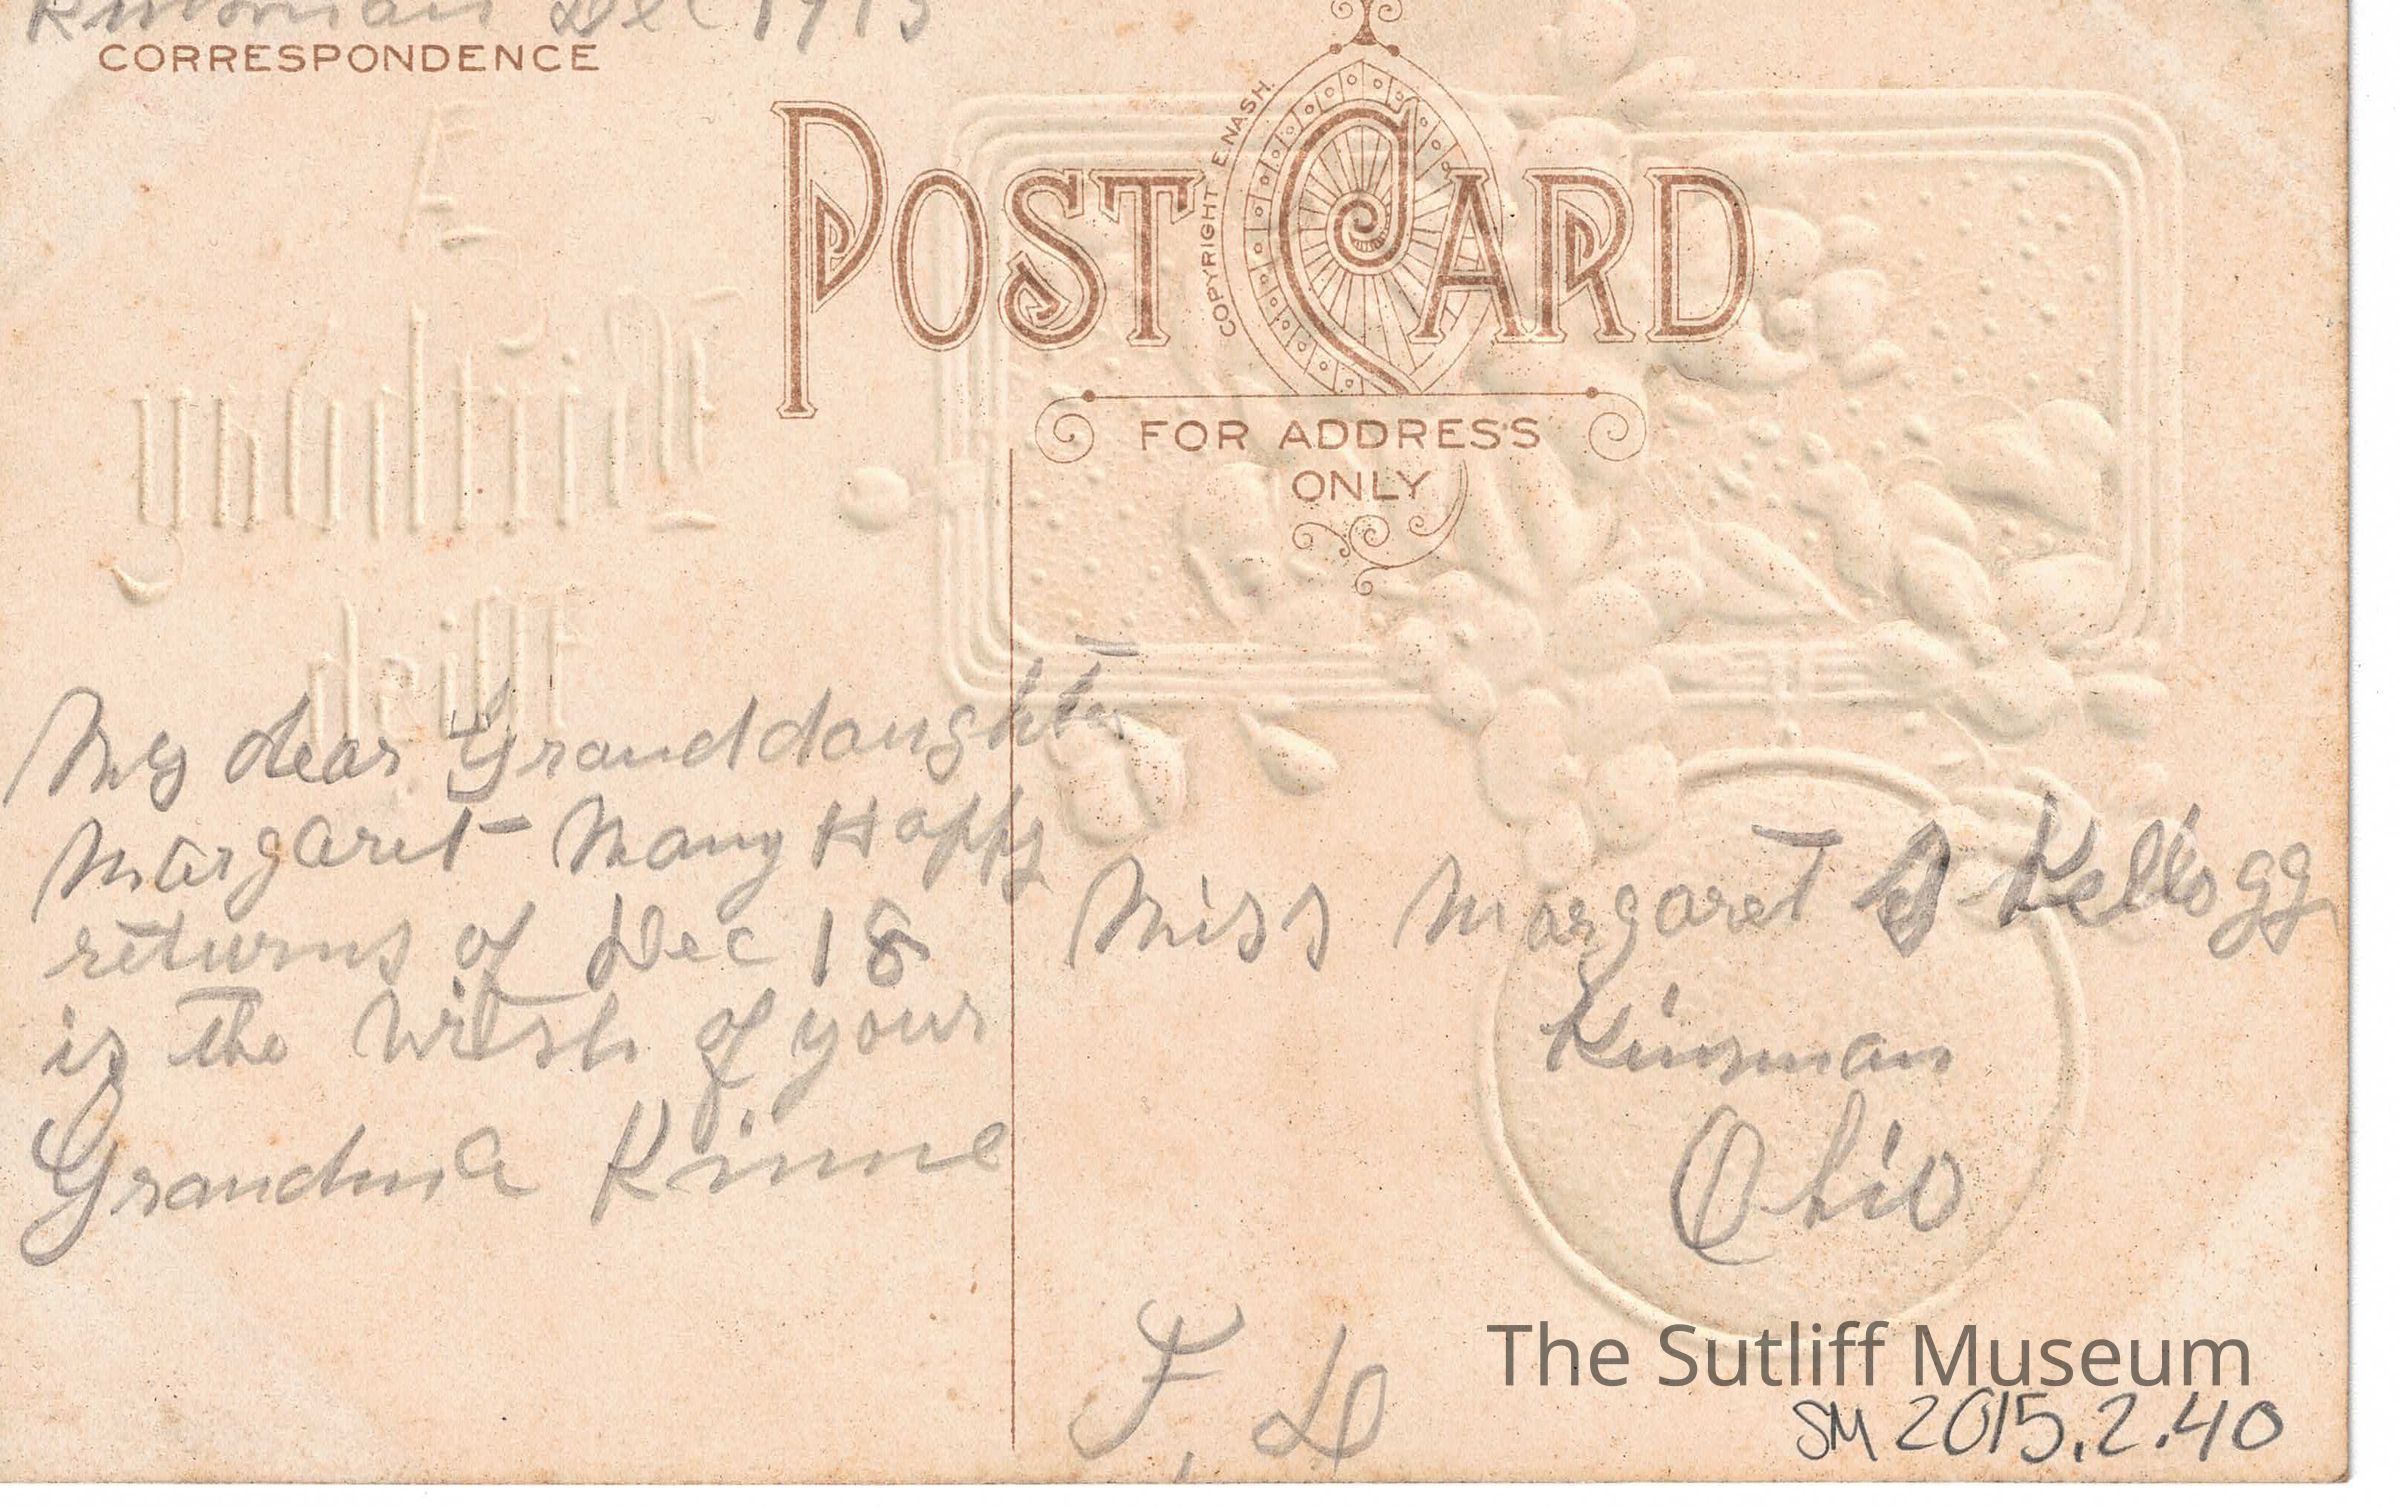 Kinsman Dec 1913
CORRESPONDENCE
POST CARD
COPYRIGHT E.NASH.
FOR ADDRESS
ONLY
A
Birthday
Wish
My dear Granddaughter
Margaret - Many Happy
returns of Dec 18
is the wish of your
Grandma Kinne
Miss Margaret Kellogg
Kinsman
Ohio
F. D
The Sutliff Museum
SM 2015.2.40